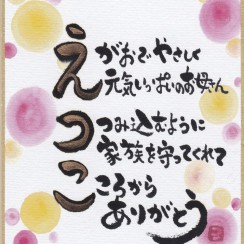 えがおでやさしく
元気いっぱいのお母さん
つつみ込むように
家族を守ってくれて
こころから
ありがとう